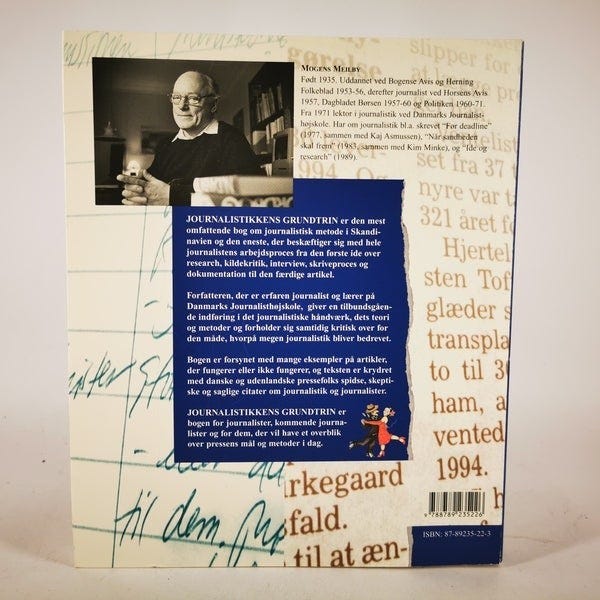 MOGENS MEILBY
Født 1935. Uddannet ved Bogense Avis og Herning
Folkeblad 1953-56, derefter journalist ved Horsens Avis
1957, Dagbladet Børsen 1957-60 og Politiken 1960-71.
Fra 1971 lektor i journalistik ved Danmarks Journalist-
højskole. Har om journalistik bl.a. skrevet "Før deadline"
(1977, sammen med Kaj Asmussen), "Når sandheden
skal frem" (1983, sammen med Kim Minke), og "Ide og
research" (1989).
JOURNALISTIKKENS GRUNDTRIN er den mest
omfattende bog om journalistisk metode i Skandi-
navien og den eneste, der beskæftiger sig med hele
journalistens arbejdsproces fra den første ide over
research, kildekritik, interview, skriveproces og
dokumentation til den færdige artikel.
Forfatteren, der er erfaren journalist og lærer på
Danmarks Journalisthøjskole, giver en tilbundsgåen-
de indføring i det journalistiske håndværk, dets teori
og metoder og forholder sig samtidig kritisk over for
den måde, hvorpå megen journalistik bliver bedrevet.
Bogen er forsynet med mange eksempler på artikler,
der fungerer eller ikke fungerer, og teksten er krydret
med danske og udenlandske pressefolks spidse, skepti-
ske og saglige citater om journalistik og journalister.
JOURNALISTIKKENS GRUNDTRIN er
bogen for journalister, kommende journa-
lister og for dem, der vil have et overblik
over pressens mål og metoder i dag.
slipper for
gørelse
1994. Og
set fra 37
nyre var t
321 året fo
Hjertel
sten Tof
glæder s
transpla
to til 3
ham, a
vented
1994.
til dem.
rkegaard
sfald.
til at æn-
9 788789 235226
ISBN: 87-89235-22-3